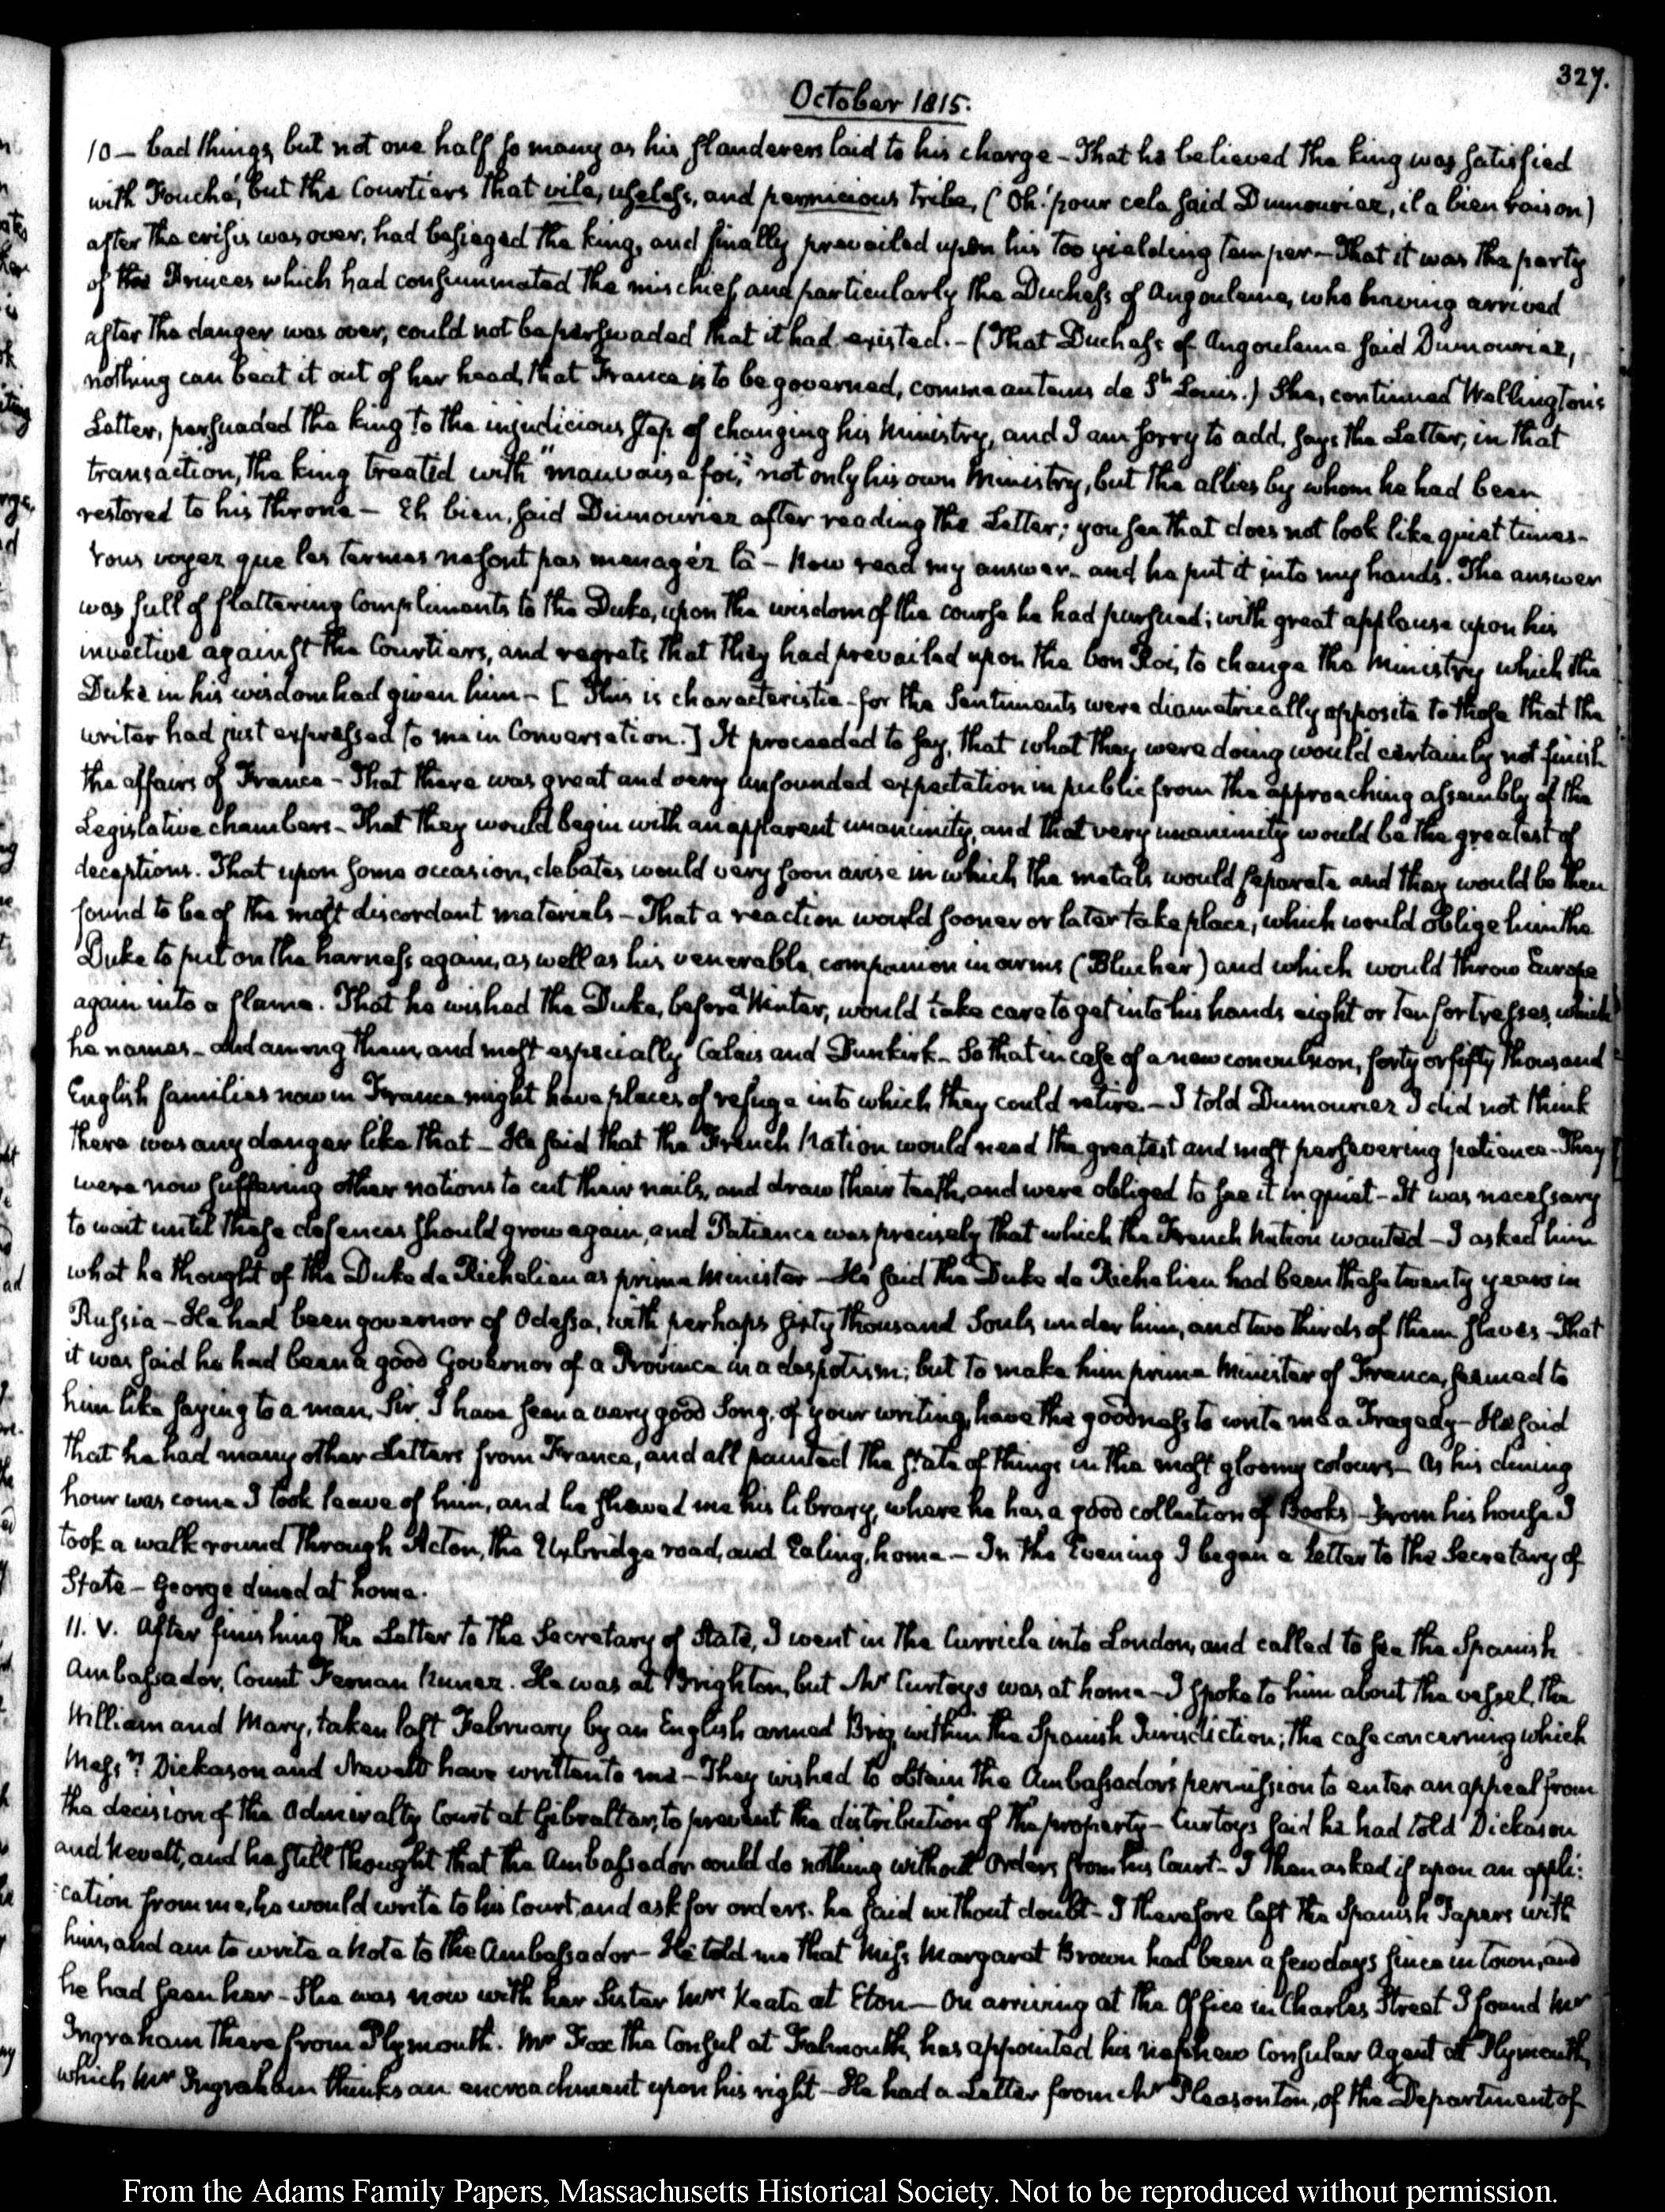 327.
October 1815.
10 — bad things, but not one half so many as his slanderers laid to his charge - That he believed the king was satisfied
with Fouché, but the Courtiers that vile, useless, and pernicious tribe, (Oh! pour cela said Dumouriez, il a bien raison)
after the crisis was over, had besieged the king, and finally prevailed upon his too yielding temper — That it was the party
of the Princes which had consummated the mischief, and particularly the Duchess of Angouleme, who having arrived
after the danger was over, could not be persuaded that it had existed. - (That Duchess of Angouleme said Dumouriez,
nothing can beat it out of her head, that France is to be governed, comme au tems de St. Louis.) She, continued Wellington's
Letter, persuaded the king to the injudicious step of changing his Ministry, and I am sorry to add, says the Letter, in that
transaction, the king treated with "mauvaise foi," not only his own Ministry, but the allies by whom he had been
restored to his throne — Eh bien, said Dumouriez after reading the Letter; you see that does not look like quiet times -
Vous voyez que les termes ne sont pas menagéz là - Now read my answer - and he put it into my hands. The answer
was full of flattering Compliments to the Duke, upon the wisdom of the course he had pursued; with great applause upon his
invective against the Courtiers, and regrets that they had prevailed upon the bon Roi, to change the Ministry which the
Duke in his wisdom had given him - [This is characteristic - for the Sentiments were diametrically opposite to those that the
writer had just expressed to me in Conversation.] It proceeded to say, that what they were doing would certainly not finish
the affairs of France - That there was great and very unfounded expectation in public from the approaching assembly of the
Legislative chambers - That they would begin with an apparent unanimity, and that very unanimity would be the greatest of
deceptions. That upon some occasion, debates would very soon arise in which the metals would separate and they would be then
found to be of the most discordant materials - That a reaction would sooner or later take place, which would oblige him the
Duke to put on the harness again, as well as his venerable companion in arms (Blucher) and which would throw Europe
again into a flame. That he wished the Duke, before Winter, would take care to get into his hands eight or ten fortresses, which
he names - and among them, and most especially Calais and Dunkirk - So that in case of a new convulsion, forty or fifty thousand
English families now in France might have places of refuge into which they could retire. - I told Dumouriez I did not think
there was any danger like that - He said that the French Nation would need the greatest and most persevering patience - They
were now suffering other nations to cut their nails, and draw their teeth, and were obliged to see it in quiet - It was necessary
to wait until these defences should grow again, and Patience was precisely that which the French Nation wanted - I asked him
what he thought of the Duke de Richelieu as prime Minister - He said the Duke de Richelieu had been these twenty years in
Russia - He had been governor of Odessa, with perhaps sixty thousand Souls under him, and two thirds of them slaves - That
it was said he had been a good Governor of a Province in a despotism; but to make him prime Minister of France, seemed to
him like saying to a man, Sir, I have seen a very good Song, of your writing, have the goodness to write me a Tragedy - He said
that he had many other Letters from France, and all painted the state of things in the most gloomy colours - As his dining
hour was come I took leave of him, and he shewed me his library, where he has a good collection of Books - From his house I
took a walk round through Acton, the Uxbridge road, and Ealing, home. - In the Evening I began a Letter to the Secretary of
State - George dined at home.
11. V. After finishing the Letter to the Secretary of State, I went in the Curricle into London, and called to see the Spanish
Ambassador, Count Fernan Nunez. He was at Brighton, but Mr Curtoys was at home - I spoke to him about the vessel, the
William and Mary, taken last February by an English armed Brig within the Spanish Jurisdiction; the case concerning which
Messrs. Dickason and Nevett have written to me - They wished to obtain the Ambassador's permission to enter an appeal from
the decision of the Admiralty Court at Gibraltar, to prevent the distribution of the property - Curtoys said he had told Dickason
and Nevett, and he still thought that the Ambassador could do nothing without Orders from his Court - I then asked if upon an appli:
:cation from me, he would write to his Court, and ask for orders. he said without doubt - I therefore left the Spanish Papers with
him, and am to write a Note to the Ambassador - He told me that Miss Margaret Brown had been a few days since in town, and
he had seen her - She was now with her Sister Mrs Keate at Eton — On arriving at the Office in Charles Street I found Mr
Ingraham there from Plymouth. Mr Fox the Consul at Falmouth, has appointed his nephew Consular Agent at Plymouth,
which Mr Ingraham thinks an encroachment upon his right - He had a Letter from Mr Pleasonton, of the Department of
From the Adams Family Papers, Massachusetts Historical Society. Not to be reproduced without permission.